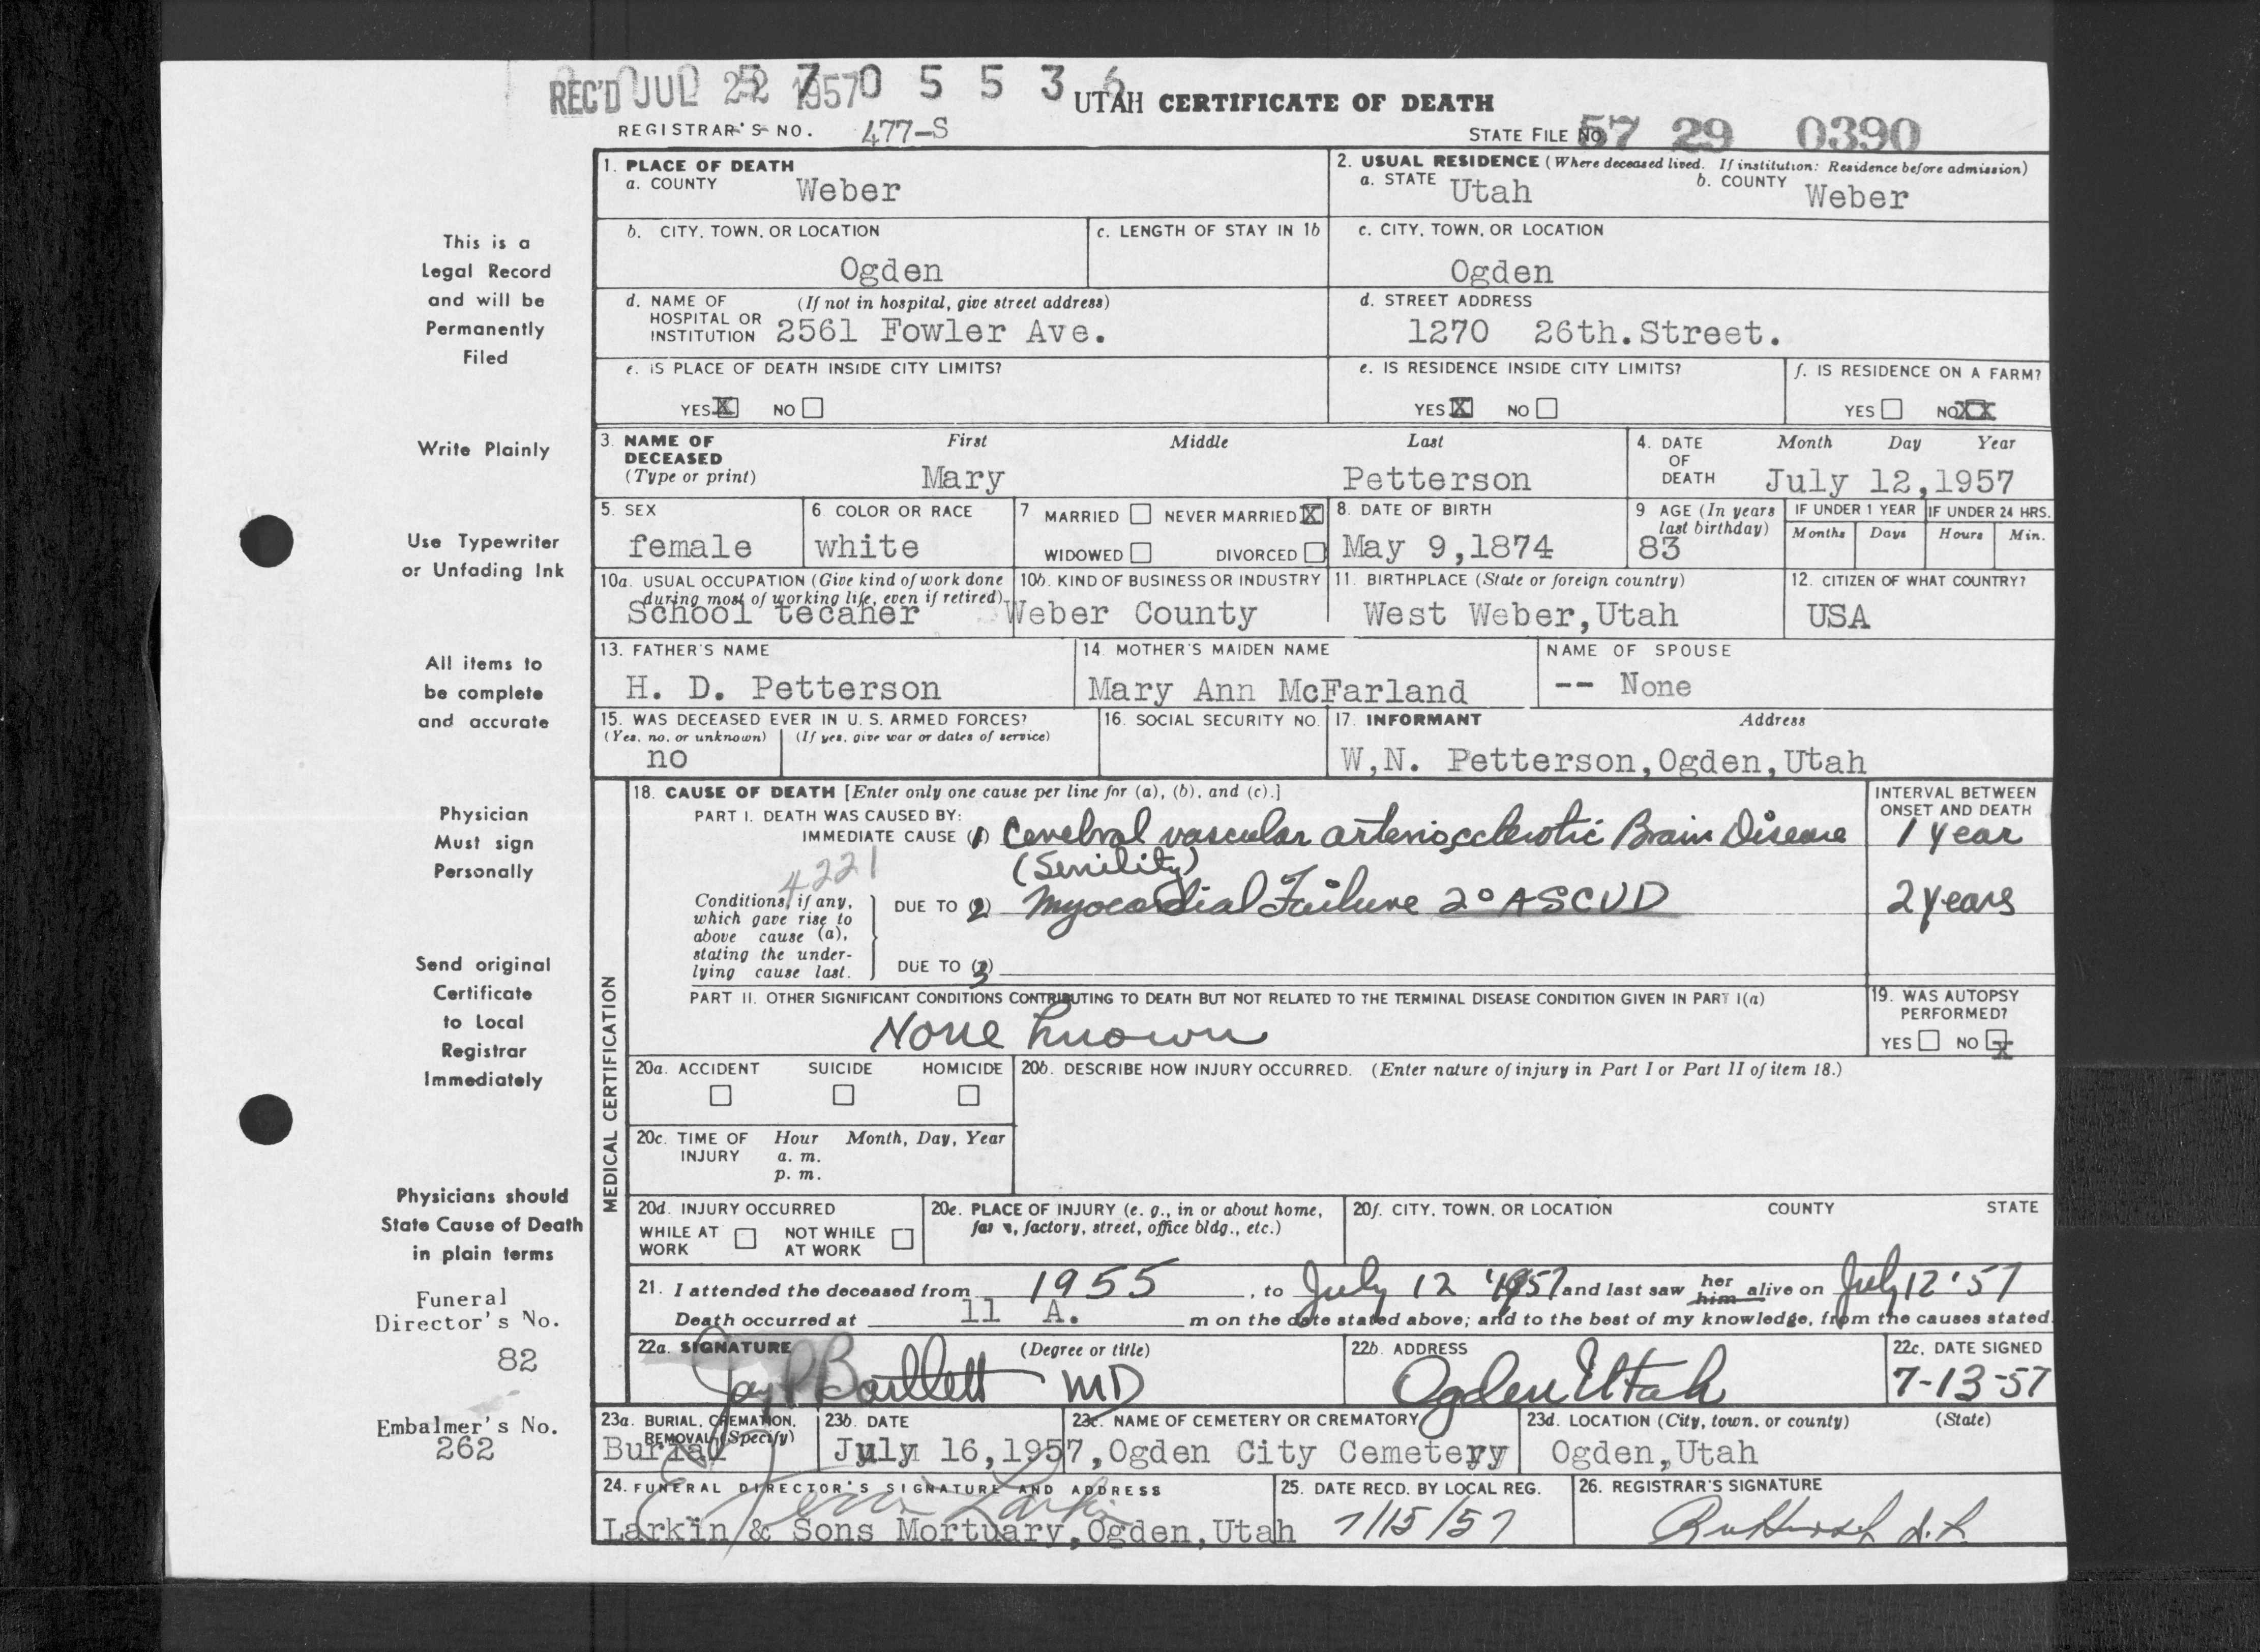 REC'D JUL 22 1957
5 7 0 5 5 3 6
UTAH CERTIFICATE OF DEATH
REGISTRAR'S NO. 477-S
STATE FILE NO. 57 29 0390
1. PLACE OF DEATH
a. COUNTY Weber
2. USUAL RESIDENCE (Where deceased lived. If institution: Residence before admission)
a. STATE Utah b. COUNTY Weber
b. CITY, TOWN, OR LOCATION Ogden
c. LENGTH OF STAY IN 1b
c. CITY, TOWN, OR LOCATION Ogden
d. NAME OF HOSPITAL OR INSTITUTION (If not in hospital, give street address) 2561 Fowler Ave.
d. STREET ADDRESS 1270 26th. Street.
e. IS PLACE OF DEATH INSIDE CITY LIMITS?
YES X NO
e. IS RESIDENCE INSIDE CITY LIMITS?
YES X NO
f. IS RESIDENCE ON A FARM?
YES NO XX
3. NAME OF DECEASED (Type or print)
First Middle Last
Mary Petterson
4. DATE OF DEATH Month Day Year
July 12,1957
5. SEX female
6. COLOR OR RACE white
7 MARRIED NEVER MARRIED X
WIDOWED DIVORCED
8. DATE OF BIRTH May 9,1874
9 AGE (In years last birthday) 83
IF UNDER 1 YEAR Months Days
IF UNDER 24 HRS. Hours Min.
10a. USUAL OCCUPATION (Give kind of work done during most of working life, even if retired) School tecaher
10b. KIND OF BUSINESS OR INDUSTRY Weber County
11. BIRTHPLACE (State or foreign country) West Weber,Utah
12. CITIZEN OF WHAT COUNTRY? USA
13. FATHER'S NAME H. D. Petterson
14. MOTHER'S MAIDEN NAME Mary Ann McFarland
NAME OF SPOUSE -- None
15. WAS DECEASED EVER IN U. S. ARMED FORCES?
(Yes, no, or unknown) (If yes, give war or dates of service)
no
16. SOCIAL SECURITY NO.
17. INFORMANT Address
W,N. Petterson,Ogden,Utah
MEDICAL CERTIFICATION
18. CAUSE OF DEATH [Enter only one cause per line for (a), (b), and (c).]
INTERVAL BETWEEN ONSET AND DEATH
PART I. DEATH WAS CAUSED BY:
IMMEDIATE CAUSE (1) Cerebral vascular arteriosclerotic Brain Disease 1 year
(Senility)
4221
Conditions, if any, which gave rise to above cause (a), stating the underlying cause last.
DUE TO (2) Myocardial Failure 2° ASCVD 2 years
DUE TO (3)
PART II. OTHER SIGNIFICANT CONDITIONS CONTRIBUTING TO DEATH BUT NOT RELATED TO THE TERMINAL DISEASE CONDITION GIVEN IN PART I(a)
None known
19. WAS AUTOPSY PERFORMED?
YES NO X
20a. ACCIDENT SUICIDE HOMICIDE
20b. DESCRIBE HOW INJURY OCCURRED. (Enter nature of injury in Part I or Part II of item 18.)
20c. TIME OF INJURY Hour Month, Day, Year
a. m.
p. m.
20d. INJURY OCCURRED
WHILE AT WORK NOT WHILE AT WORK
20e. PLACE OF INJURY (e. g., in or about home, farm, factory, street, office bldg., etc.)
20f. CITY, TOWN, OR LOCATION COUNTY STATE
21. I attended the deceased from 1955, to July 12 1957 and last saw her him alive on July 12 '57
Death occurred at 11 A. m on the date stated above; and to the best of my knowledge, from the causes stated.
22a. SIGNATURE (Degree or title)
Jay P Bartlett MD
22b. ADDRESS Ogden Utah
22c. DATE SIGNED 7-13-57
23a. BURIAL, CREMATION, REMOVAL (Specify) Burial
23b. DATE July 16,1957,
23c. NAME OF CEMETERY OR CREMATORY Ogden City Cemetery
23d. LOCATION (City, town, or county) (State)
Ogden,Utah
24. FUNERAL DIRECTOR'S SIGNATURE AND ADDRESS
Larkin
Larkin & Sons Mortuary,Ogden,Utah
25. DATE RECD. BY LOCAL REG. 7/15/57
26. REGISTRAR'S SIGNATURE
This is a
Legal Record
and will be
Permanently
Filed
Write Plainly
Use Typewriter
or Unfading Ink
All items to
be complete
and accurate
Physician
Must sign
Personally
Send original
Certificate
to Local
Registrar
Immediately
Physicians should
State Cause of Death
in plain terms
Funeral
Director's No.
82
Embalmer's No.
262